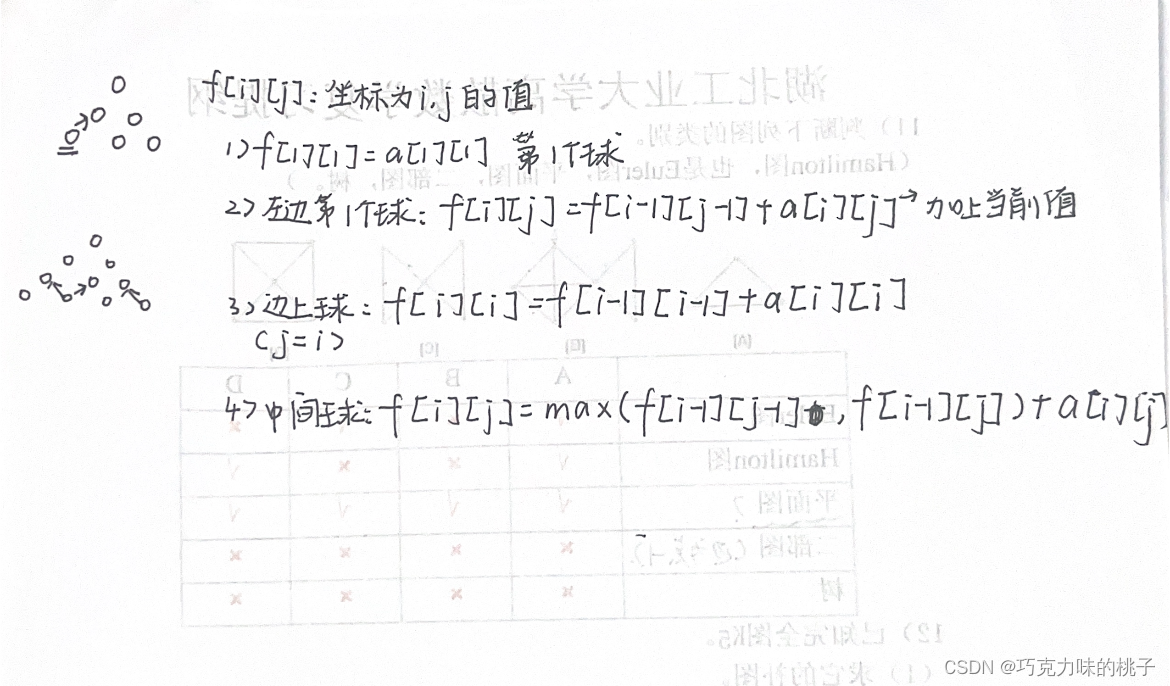 f[i][j]: 坐标为i,j的值
1>f[1][1]=a[1][1] 第1个球
2>左边第1个球: f[i][j]=f[i-1][j-1]+a[i][j]→加上当前值
3>边上球: f[i][i]=f[i-1][i-1]+a[i][i]
<j=i>
4>中间球: f[i][j]=max(f[i-1][j-1], f[i-1][j])+a[i][j]
湖北工业大学离散数学复习提纲
11）判断下列图的类别。
（Hamilton图，也是Euler图，平面图，二部图，树。）
[A] [B] [C]
A B C D
Hamilton图 √ × × √
平面图 √ √ √ √
二部图 × × × ×
树 × × × ×
12）已知完全图K5。
（1）求它的补图。
CSDN @巧克力味的桃子